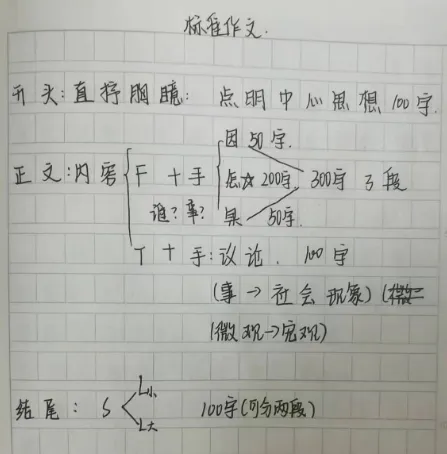 标准作文.
开头:直抒胸臆:点明中心思想100字.
因50字.
正文:内容 F+手 怎☆200字. 300字 3段
谁?事? 果 50字.
T+手:议论. 100字
(事→社会现象)
(微观→宏观)
结尾: S L小 L大 100字(可分两段)